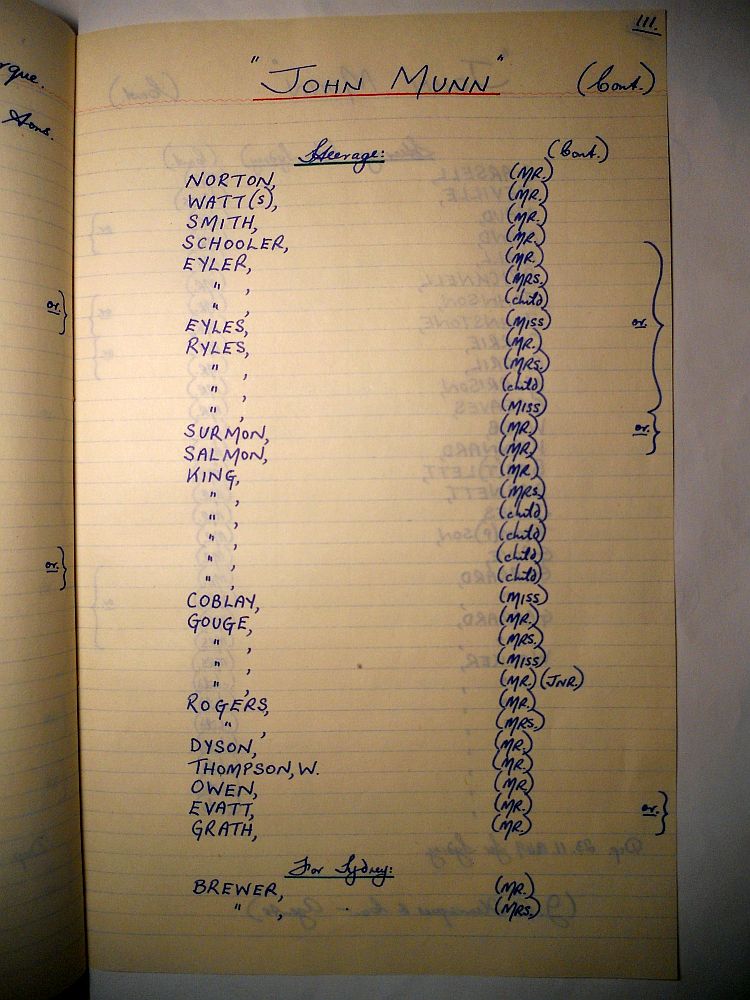 rgue.
Sons.
or.
or.
111.
"JOHN MUNN" (Cont.)
Steerage: (Cont.)
NORTON, (MR.)
WATT(S), (MR.)
SMITH, (MR.)
SCHOOLER, (MR.)
EYLER, (MR.)
" , (MRS.)
" , (child)
EYLES, (MISS) or.
RYLES, (MR.)
" , (MRS.)
" , (child)
" , (MISS)
SURMON, (MR.) or.
SALMON, (MR.)
KING, (MR.)
" , (MRS.)
" , (child)
" , (child)
" , (child)
" , (child)
COBLAY, (MISS)
GOUGE, (MR.)
" , (MRS.)
" , (MISS)
" , (MR.) (JNR.)
ROGERS, (MR.)
" , (MRS.)
DYSON, (MR.)
THOMPSON, W. (MR.)
OWEN, (MR.)
EVATT, (MR.) or.
GRATH, (MR.)
For Sydney:
BREWER, (MR.)
" , (MRS.)